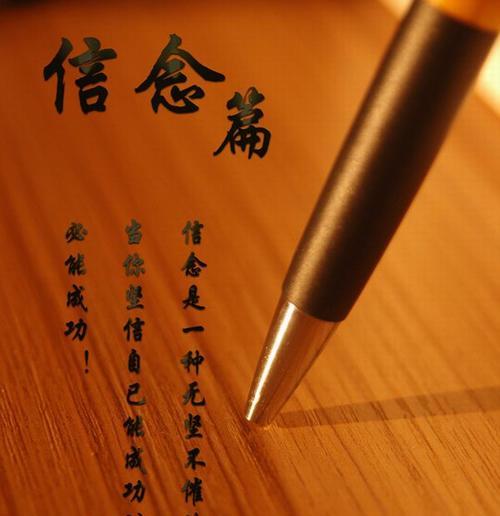 信念
篇
信念是一种无坚不催
当你坚信自己能成功
必能成功！